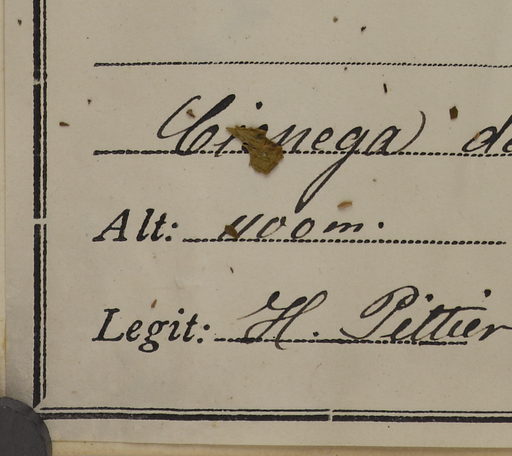 Cienega de
Alt: 1100 m.
Legit: H. Pittier